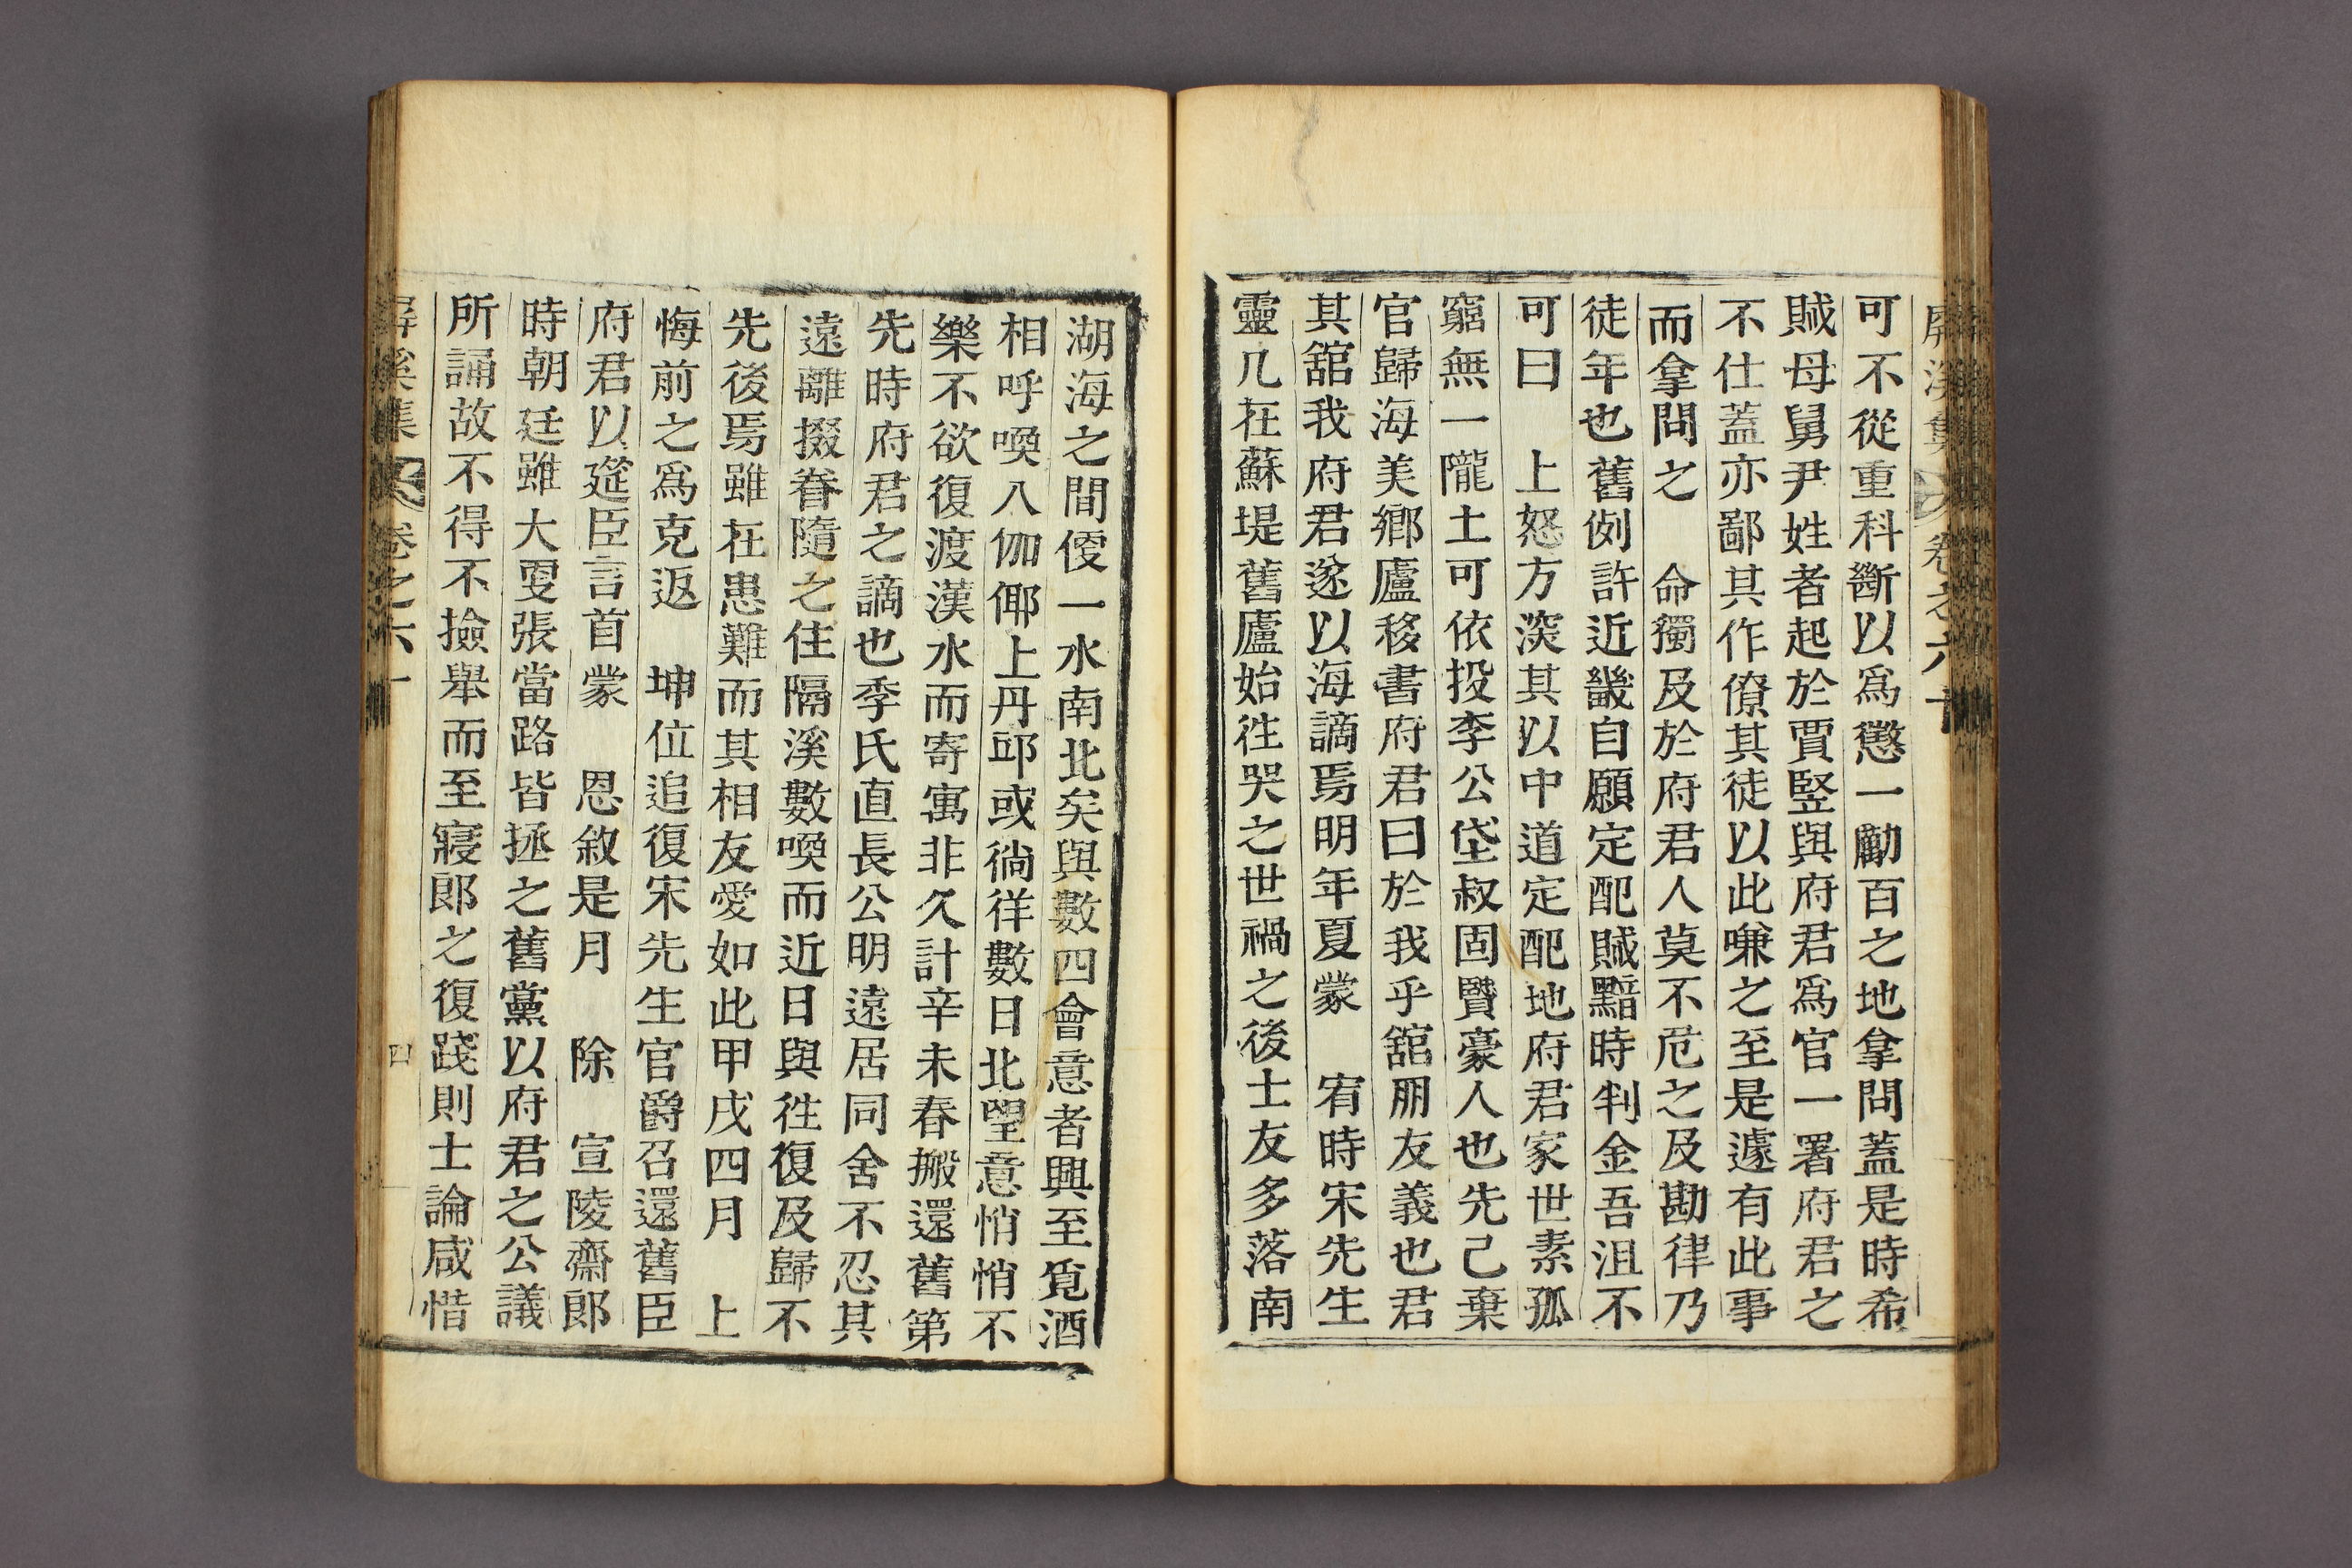 屛溪集 卷之六十
可不從重科斷以爲懲一勵百之地拿問蓋是時希
賊母舅尹姓者起於賈竪與府君爲官一署府君之
不仕蓋亦鄙其作僚其徒以此嗛之至是遽有此事
而拿問之 命獨及於府君人莫不危之及勘律乃
徒年也舊例許近畿自願定配賊黯時判金吾沮不
可曰 上怒方深其以中道定配地府君家世素孤
窮無一隴土可依投李公垈叔固贒豪人也先己棄
官歸海美鄕廬移書府君曰於我乎舘朋友義也君
其舘我府君遂以海謫焉明年夏蒙 宥時宋先生
靈几在蘇堤舊廬始徃哭之世禍之後士友多落南
湖海之間便一水南北矣與數四會意者興至覓酒
相呼喚八伽倻上丹邱或徜徉數日北望意悄悄不
樂不欲復渡漢水而寄寓非久計辛未春搬還舊第
先時府君之謫也李氏直長公明遠居同舍不忍其
遠離掇眷隨之住隔溪數喚而近日與徃復及歸不
先後焉雖在患難而其相友愛如此甲戌四月 上
悔前之爲克返 坤位追復宋先生官爵召還舊臣
府君以筵臣言首蒙 恩敘是月 除 宣陵齋郞
時朝廷雖大更張當路皆拯之舊黨以府君之公議
所誦故不得不撿舉而至寢郞之復踐則士論咸惜
屛溪集 卷之六十 四